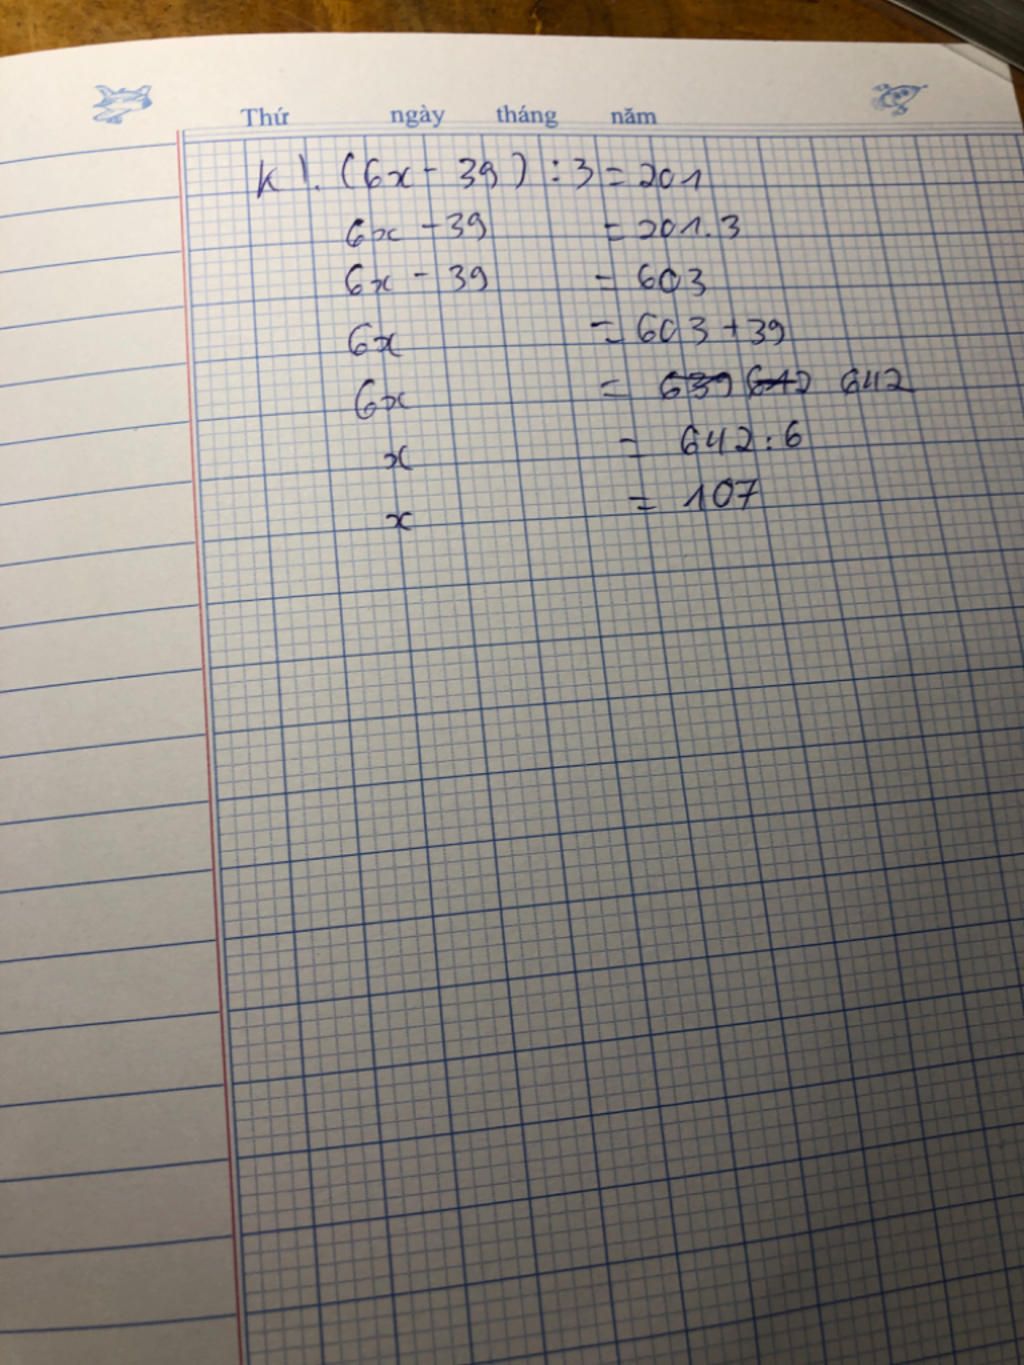 Thứ ngày tháng năm
k). (6x - 39) : 3 = 201
6x - 39 = 201.3
6x - 39 = 603
6x = 603 + 39
6x = 639 642 642
x = 642:6
x = 107